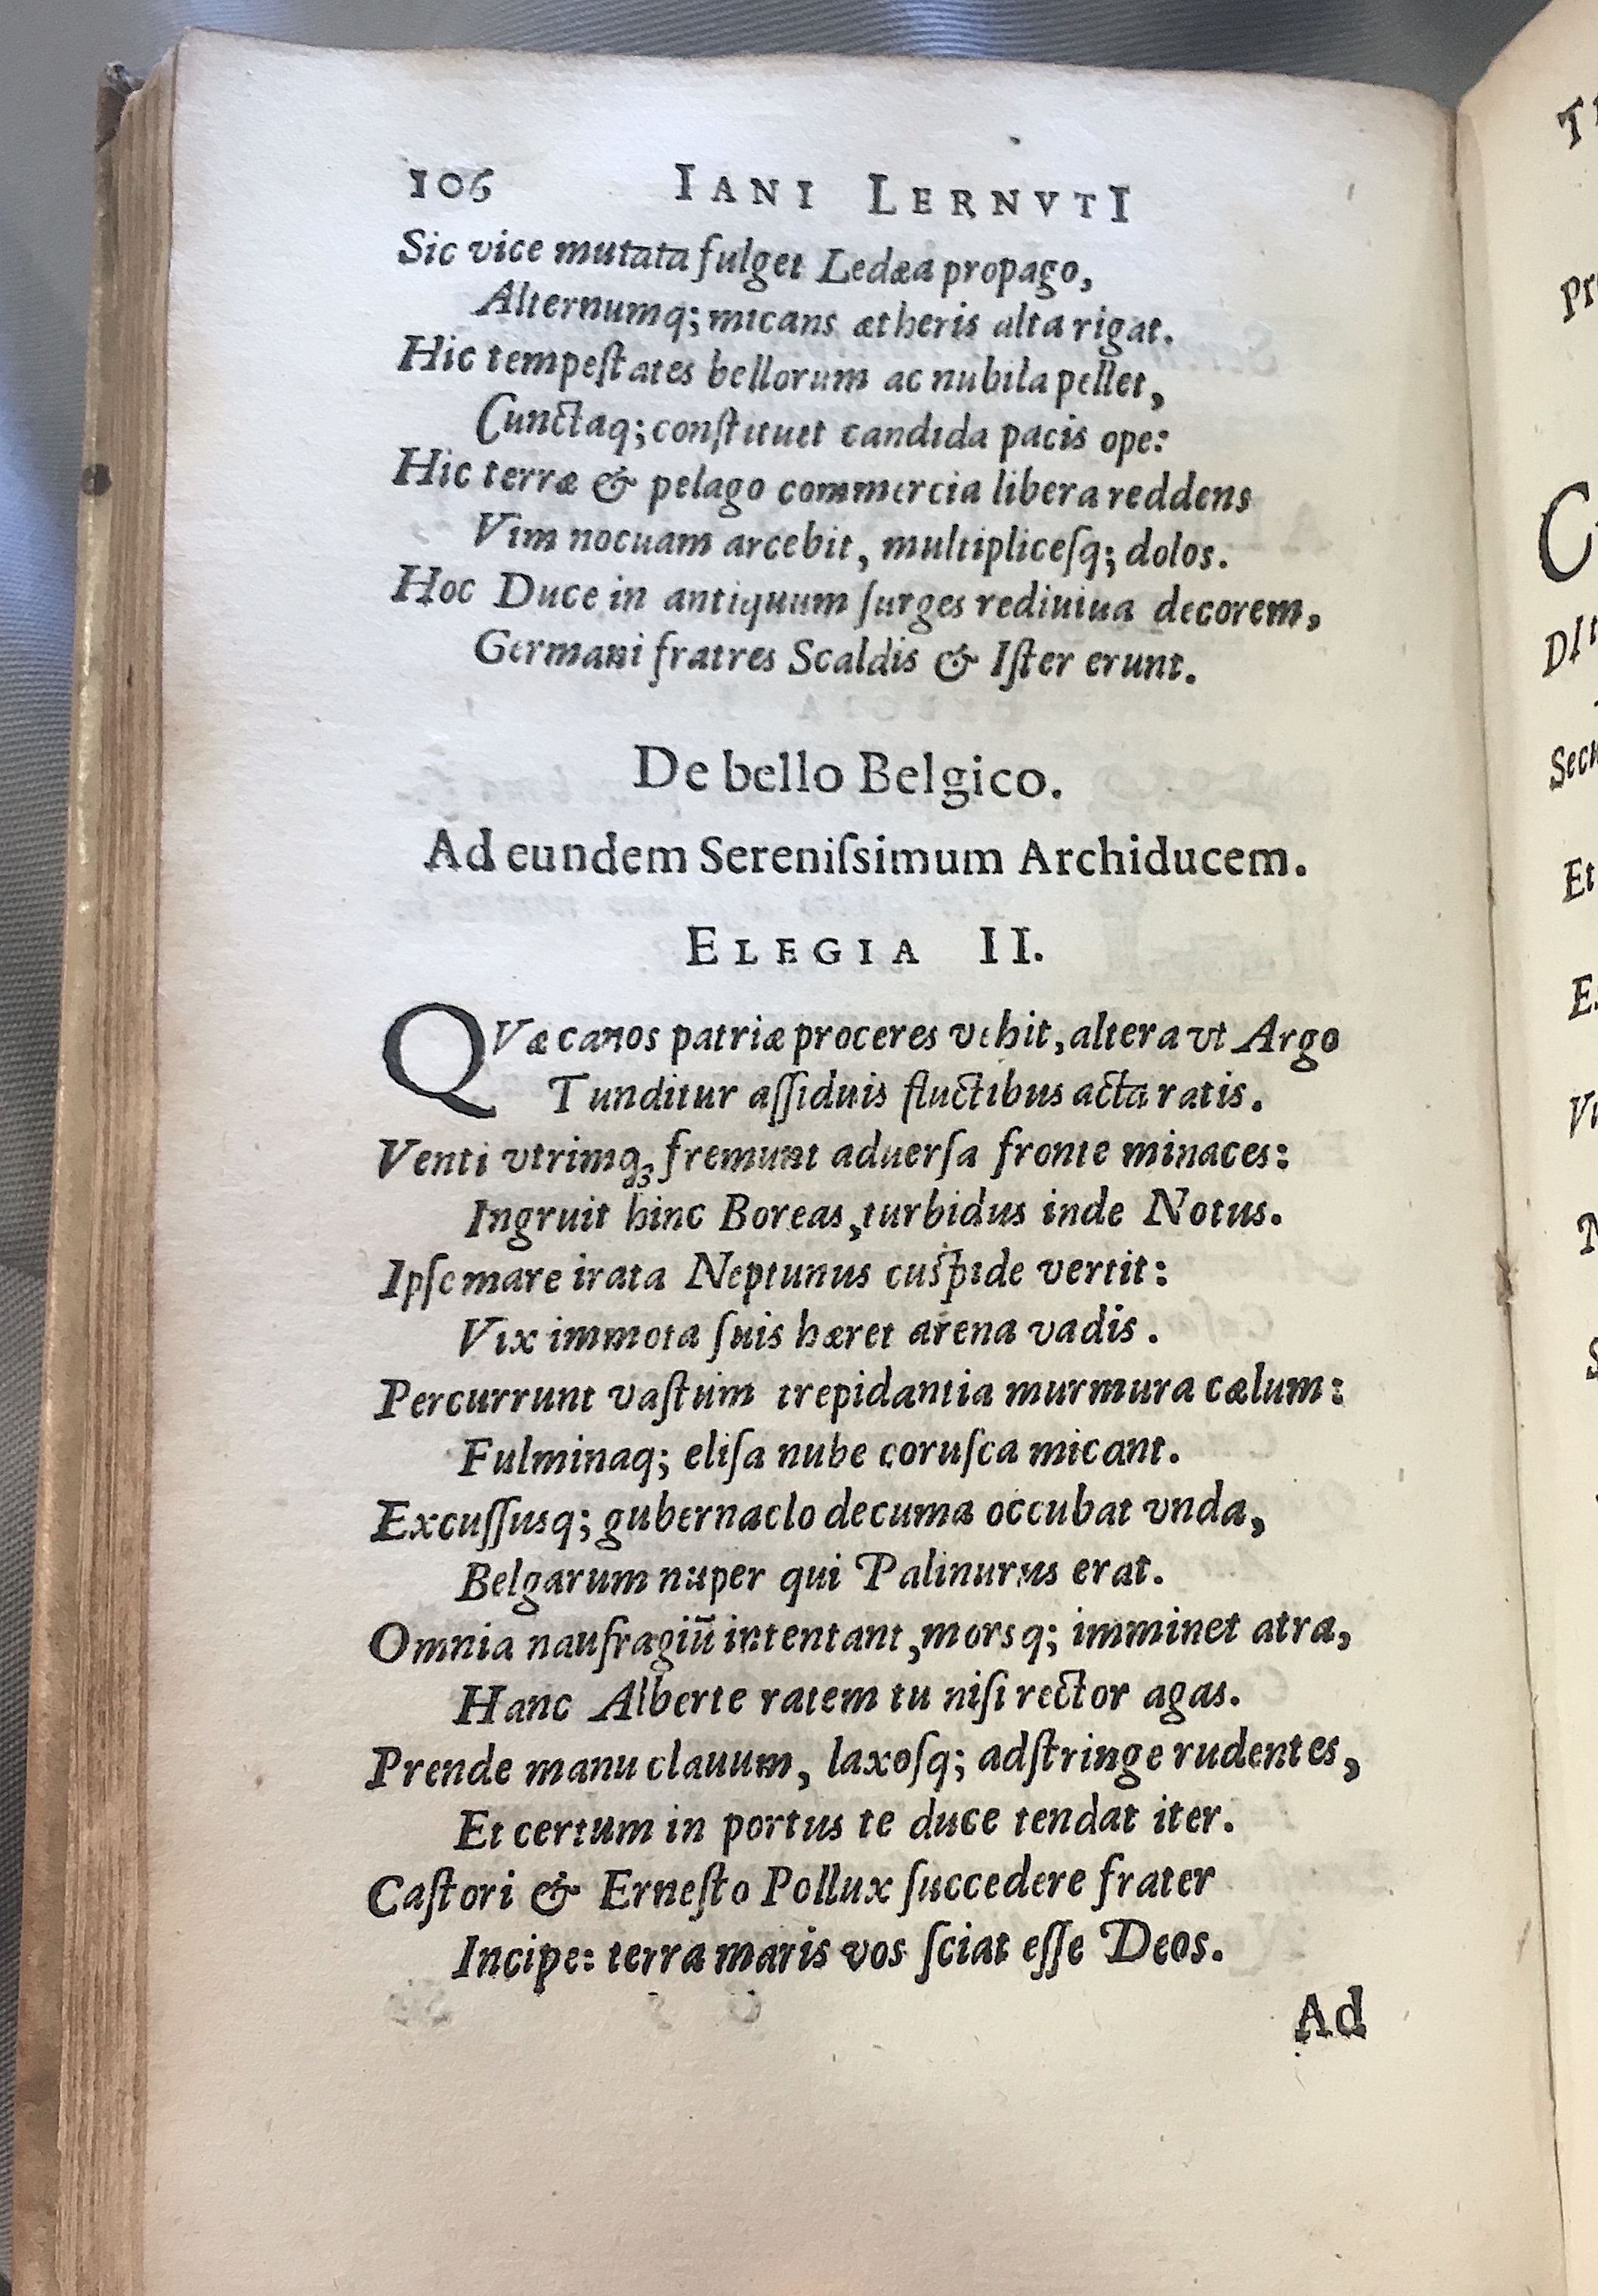 106 IANI LERNVTI
Sic vice mutata fulget Ledæa propago,
Alternumq; micans ætheris alta rigat.
Hic tempeſtates bellorum ac nubila pellet,
Cunctaq; conſtituet candida pacis ope:
Hic terræ & pelago commercia libera reddens
Vim nocuam arcebit, multipliceſq; dolos.
Hoc Duce in antiquum ſurges rediuiua decorem,
Germani fratres Scaldis & Iſter erunt.
De bello Belgico.
Ad eundem Sereniſsimum Archiducem.
ELEGIA II.
QVæ canos patriæ proceres vehit, altera vt Argo
Tunditur aſſiduis fluctibus acta ratis.
Venti vtrimq́; fremunt aduerſa fronte minaces:
Ingruit hinc Boreas, turbidus inde Notus.
Ipſe mare irata Neptunus cuſpide vertit:
Vix immota ſuis hæret arena vadis.
Percurrunt vaſtum trepidantia murmura cælum:
Fulminaq; eliſa nube coruſca micant.
Excuſſusq; gubernaclo decuma occubat vnda,
Belgarum nuper qui Palinurus erat.
Omnia naufragiū intentant, morsq; imminet atra,
Hanc Alberte ratem tu niſi rector agas.
Prende manu clauum, laxoſq; adſtringe rudentes,
Et certum in portus te duce tendat iter.
Caſtori & Erneſto Pollux ſuccedere frater
Incipe: terra maris vos ſciat eſſe Deos.
Ad